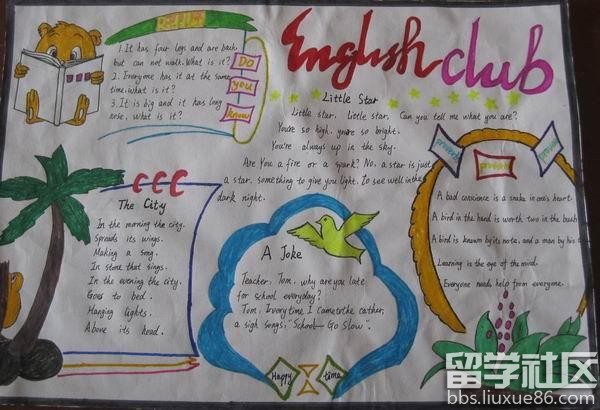 English club
Riddles
1. It has four legs and one back,
but can not walk. What is it?
2. Everyone has it at the same
time. what is it?
3. It is big and it has long
nose, what is it?
Do
you
know
Little Star
Little star, little star, Can you tell me what you are?
You're so high, you're so bright,
You're always up in the sky.
Are You a fire or a spark? No, a star is just
a star, something to give you light. To see well in the
dark night.
The City
In the morning the city.
Spreads its wings.
Making a song.
In stone that sings.
In the evening the city.
Goes to bed.
Hanging lights.
Above its head.
A Joke
Teacher: Tom, why are you late
for school everyday?
Tom: Every time I come to the
a sigh songs: "School—Go Slow".
Happy
time
proverb
proverb
proverb
A bad conscience is a snake in one's heart.
A bird in the hand is worth two in the bush
A bird is known by its note, and a man by his
Learning is the eye of the mind.
Everyone needs help from everyone.
留学社区
bbs.liuxue86.com